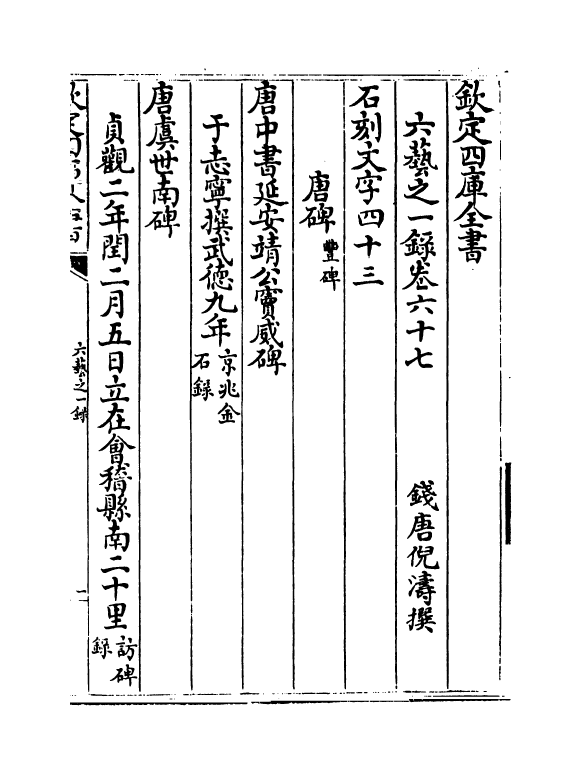 欽定四庫全書
六藝之一錄卷六十七
錢唐倪濤撰
石刻文字四十三
唐碑豐碑
唐中書延安靖公竇威碑
于志寧撰武德九年京兆金石錄
唐虞世南碑
貞觀二年閏二月五日立在會稽縣南二十里訪碑錄
六藝之一錄